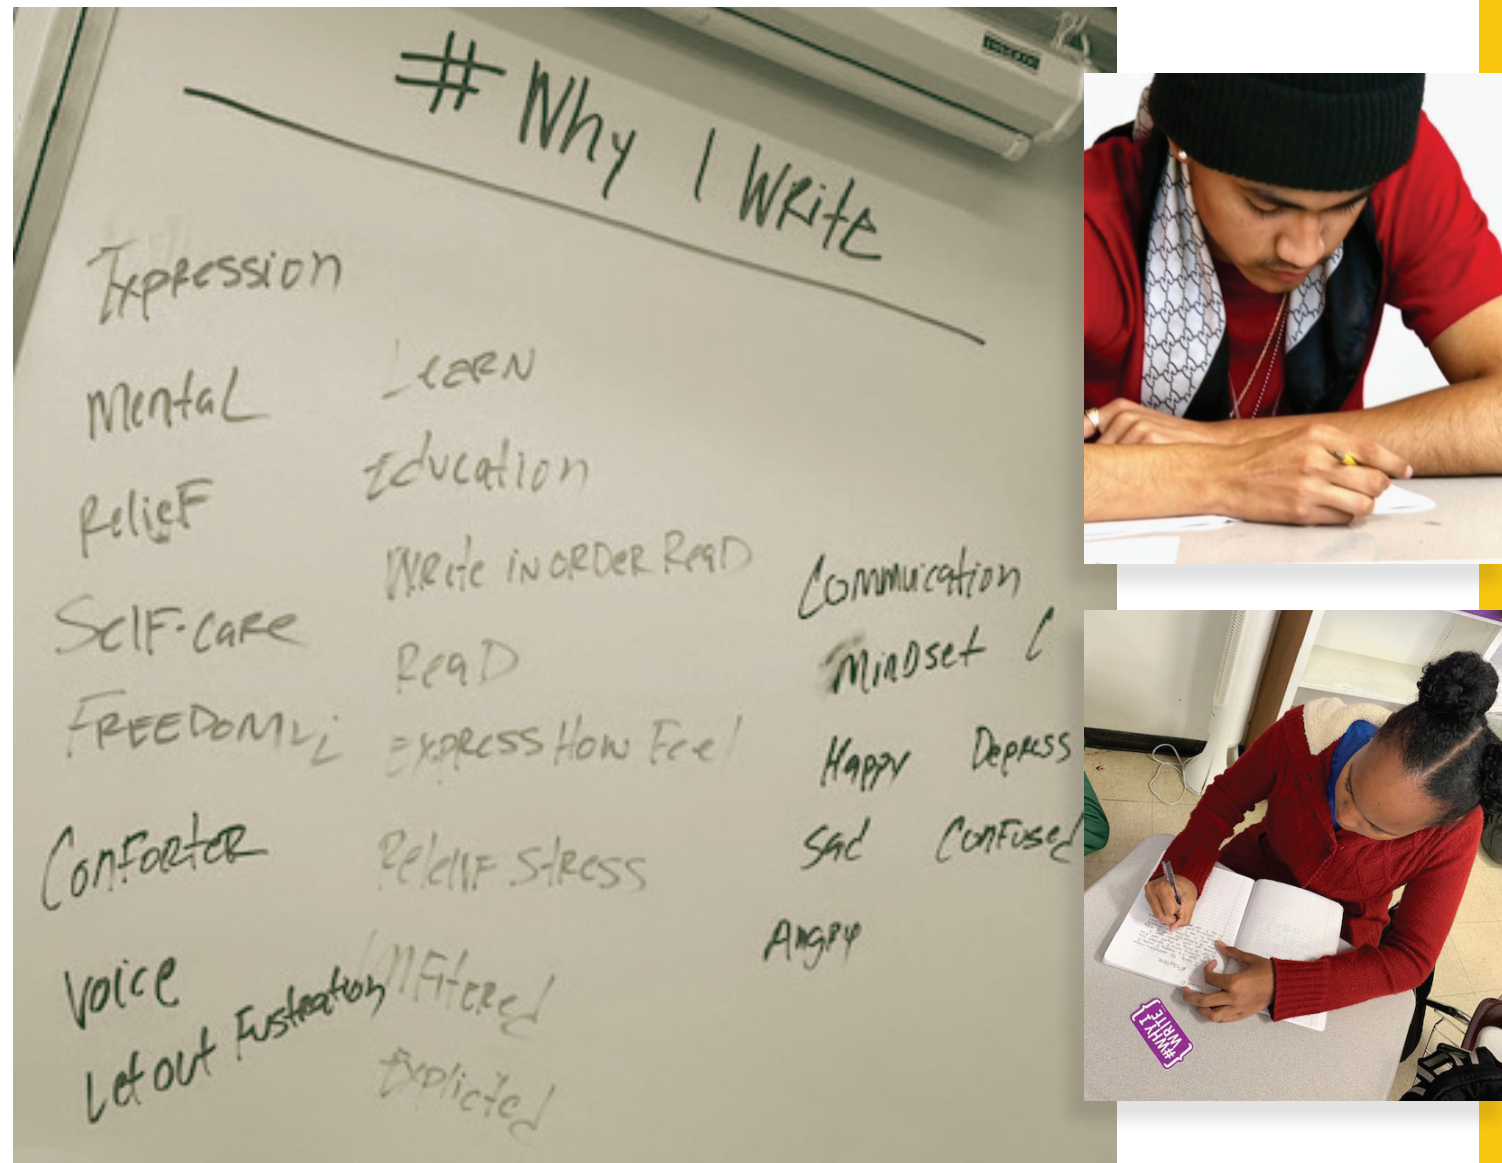 #Why I Write
Expression
Mental
Relief
Self-care
FREEDOM
Conforter
Voice
Let out Fustration
Learn
Education
Write in order Read
Read
Express How Feel
Stress
Explicted
Commucation
Mindset
Happy Depress
Sad Confused
Angry
#WHY I
WRITE